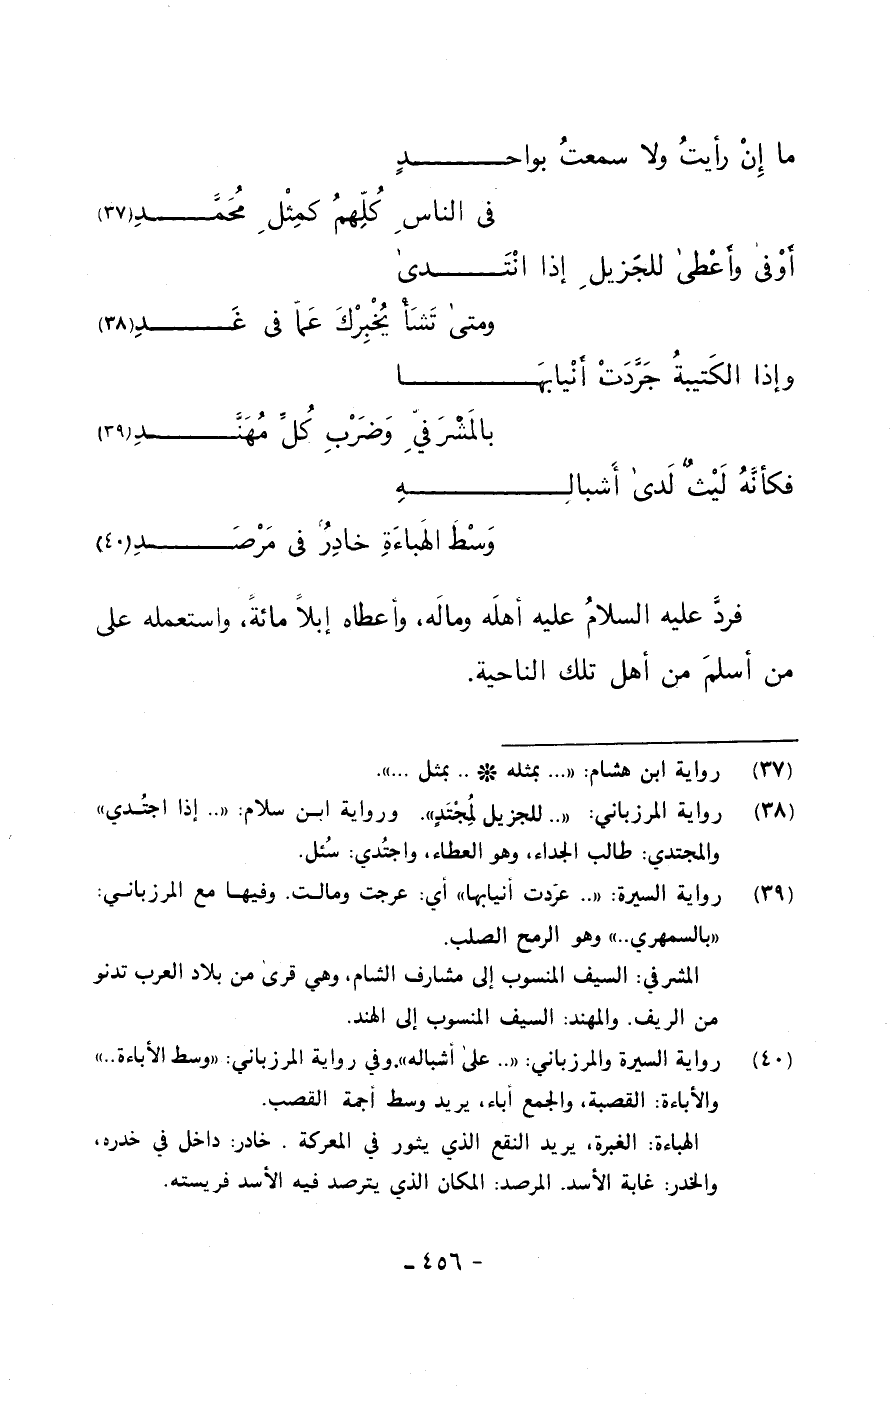 ما إِنْ رأيتُ ولا سمعتُ بواحـــــدٍ
فى الناسِ كُلِّهمُ كمِثْلِ مُحَمَّـــــدِ(٣٧)
أَوْفىٰ وأَعْطىٰ للجَزيلِ إذا انْتَـــــدىٰ
ومتىٰ تَشَأْ يُخْبِرْكَ عَمَّا فى غَـــــدِ(٣٨)
وإذا الكَتيبةُ جَرَّدَتْ أَنْيابهَـــــا
بالمَشْرَفيِّ وَضَرْبِ كُلِّ مُهَنَّـــــدِ(٣٩)
فكأنَّهُ لَيْثٌ لَدىٰ أَشبالِـــــهِ
وَسْطَ الهَباءَةِ خادِرٌ فى مَرْصَـــــدِ(٤٠)
فردَّ عليه السلامُ عليه أهلَه ومالَه، وأعطاه إبلاً مائةً، واستعمله على
من أسلمَ من أهل تلك الناحية.
(٣٧) رواية ابن هشام: «... بمثله * .. بمثل ...».
(٣٨) رواية المرزباني: «.. للجزيل لُمِجْتَدٍ». ورواية ابن سلام: «.. إذا اجتُدي»
والمجتدي: طالب الجداء، وهو العطاء، واجتُدي: سُئل.
(٣٩) رواية السيرة: «.. عرّدت أنيابها» أي: عرجت ومالت. وفيها مع المرزباني:
«بالسمهري..» وهو الرمح الصلب.
المشرفي: السيف المنسوب إلى مشارف الشام، وهي قرىٰ من بلاد العرب تدنو
من الريف. والمهند: السيف المنسوب إلى الهند.
(٤٠) رواية السيرة والمرزباني: «.. علىٰ أشباله».وفي رواية المرزباني: «وسط الأباءة..»
والأباءة: القصبة، والجمع أباء، يريد وسط أجمة القصب.
الهباءة: الغبرة، يريد النقع الذي يثور في المعركة . خادر: داخل في خدره،
والخدر: غابة الأسد. المرصد: المكان الذي يترصد فيه الأسد فريسته.
- ٤٥٦ -